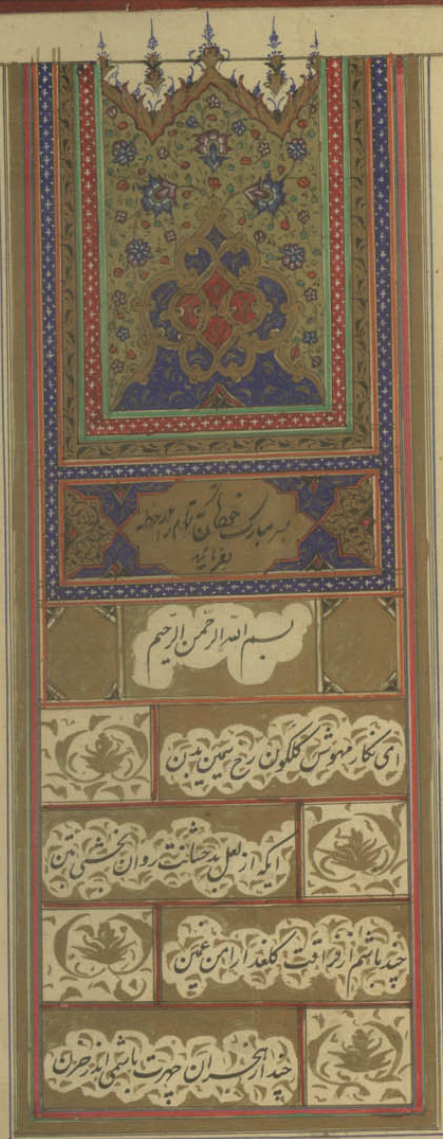 بسر مبارک خودتان قسم
بفرمائید
بسم الله الرحمن الرحیم
ای نکار مهوش کلکون رخ سیمین بدن
ایکه از لعل بدخشانت روان بخشی بتن
چند باشم از فراقت کلعذارا من غمین
چند از هجران چهرت باشمی اندر حزن